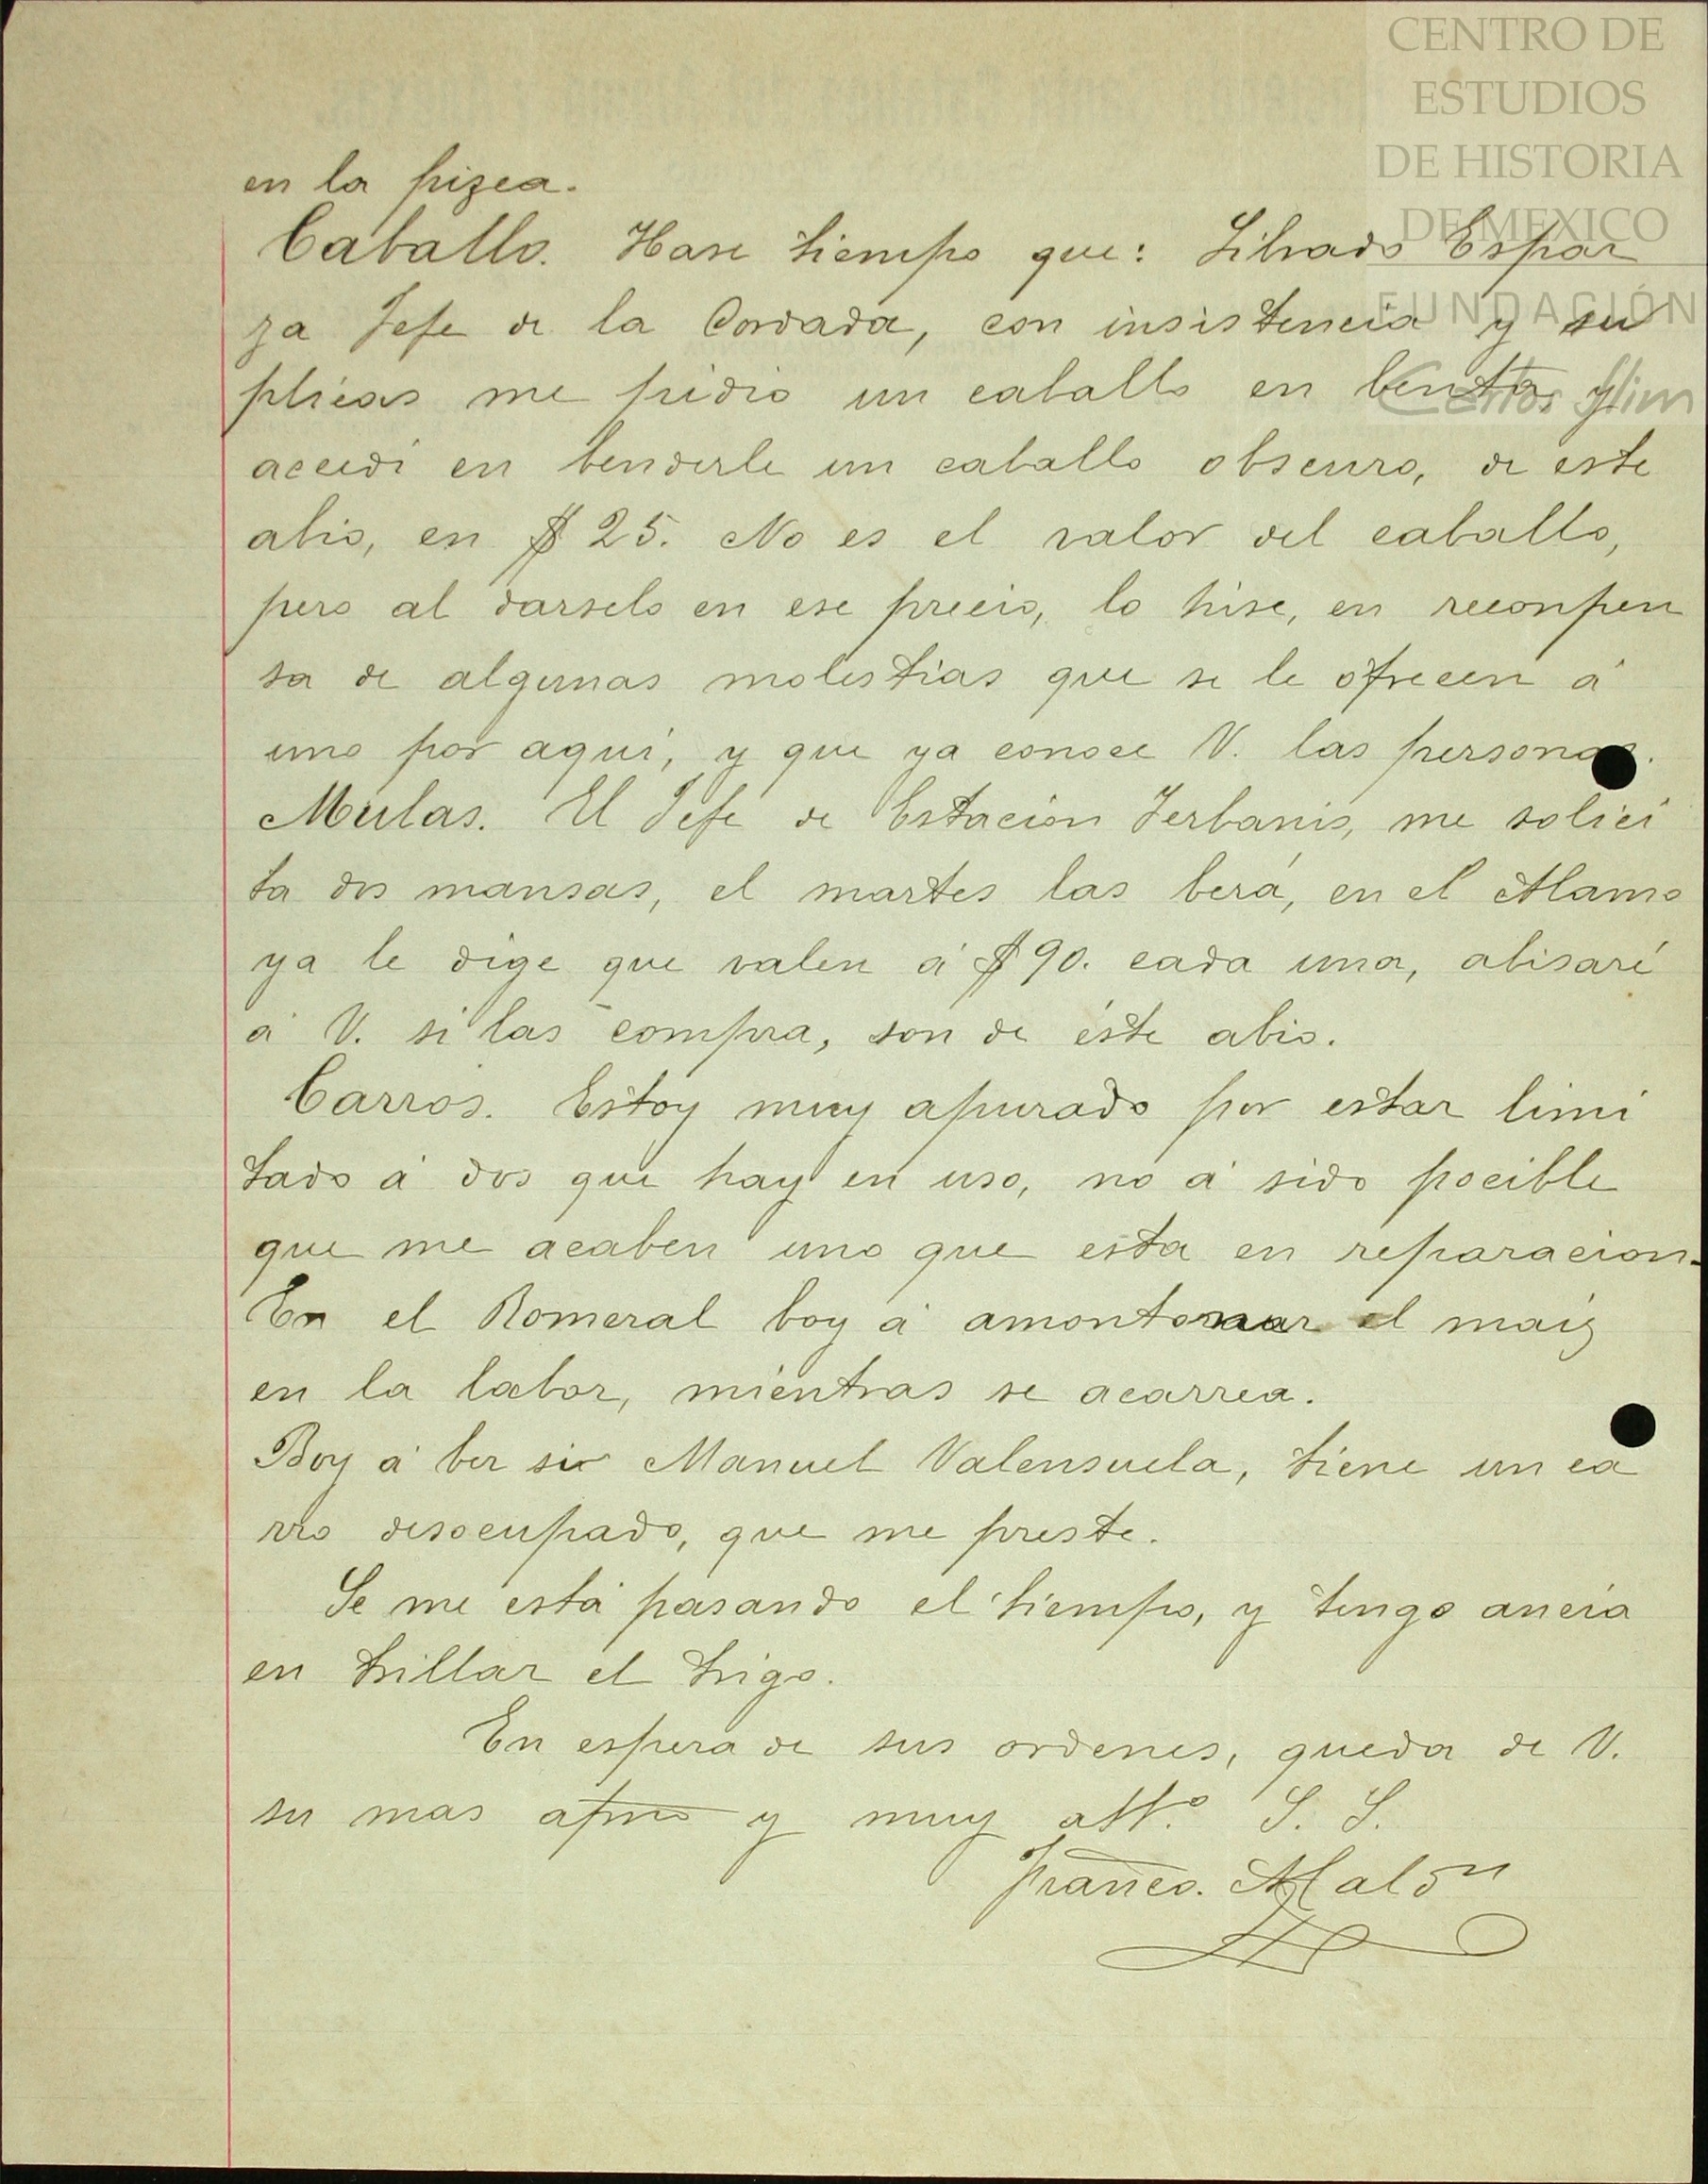 CENTRO DE
ESTUDIOS
DE HISTORIA
DE MEXICO
FUNDACIÓN
Carlos Slim
en la pizca.
Caballo. Hase tiempo que: Librado Espar
za Jefe de la Cordada, con insistencia y su
plicas me pidio un caballo en benta, y
accedi en benderle un caballo obscuro, de este
abio, en $ 25. No es el valor del caballo,
pero al darselo en ese precio, lo hise, en reconpen
sa de algunas molestias que se le ofrecen á
uno por aquí, y que ya conoce V. las personas.
Mulas. El Jefe de Estacion Yerbanis, me solici
ta dos mansas, el martes las berá, en el Alamo
ya le dige que valen á $ 90. cada una, abisaré
á V. si las compra, son de éste abio.
Carros. Estoy muy apurado por estar limi
tado á dos que hay en uso, no á sido pocible
que me acaben uno que esta en reparacion.
En el Romeral boy á amontonar el maiz
en la labor, mientras se acarrea.
Boy á ber si Manuel Valensuela, tiene un ca
rro desocupado, que me preste.
Se me está pasando el tiempo, y tengo ancia
en trillar el trigo.
En espera de sus ordenes, queda de V.
su mas afmo y muy atto. S. S.
Franco. Malón